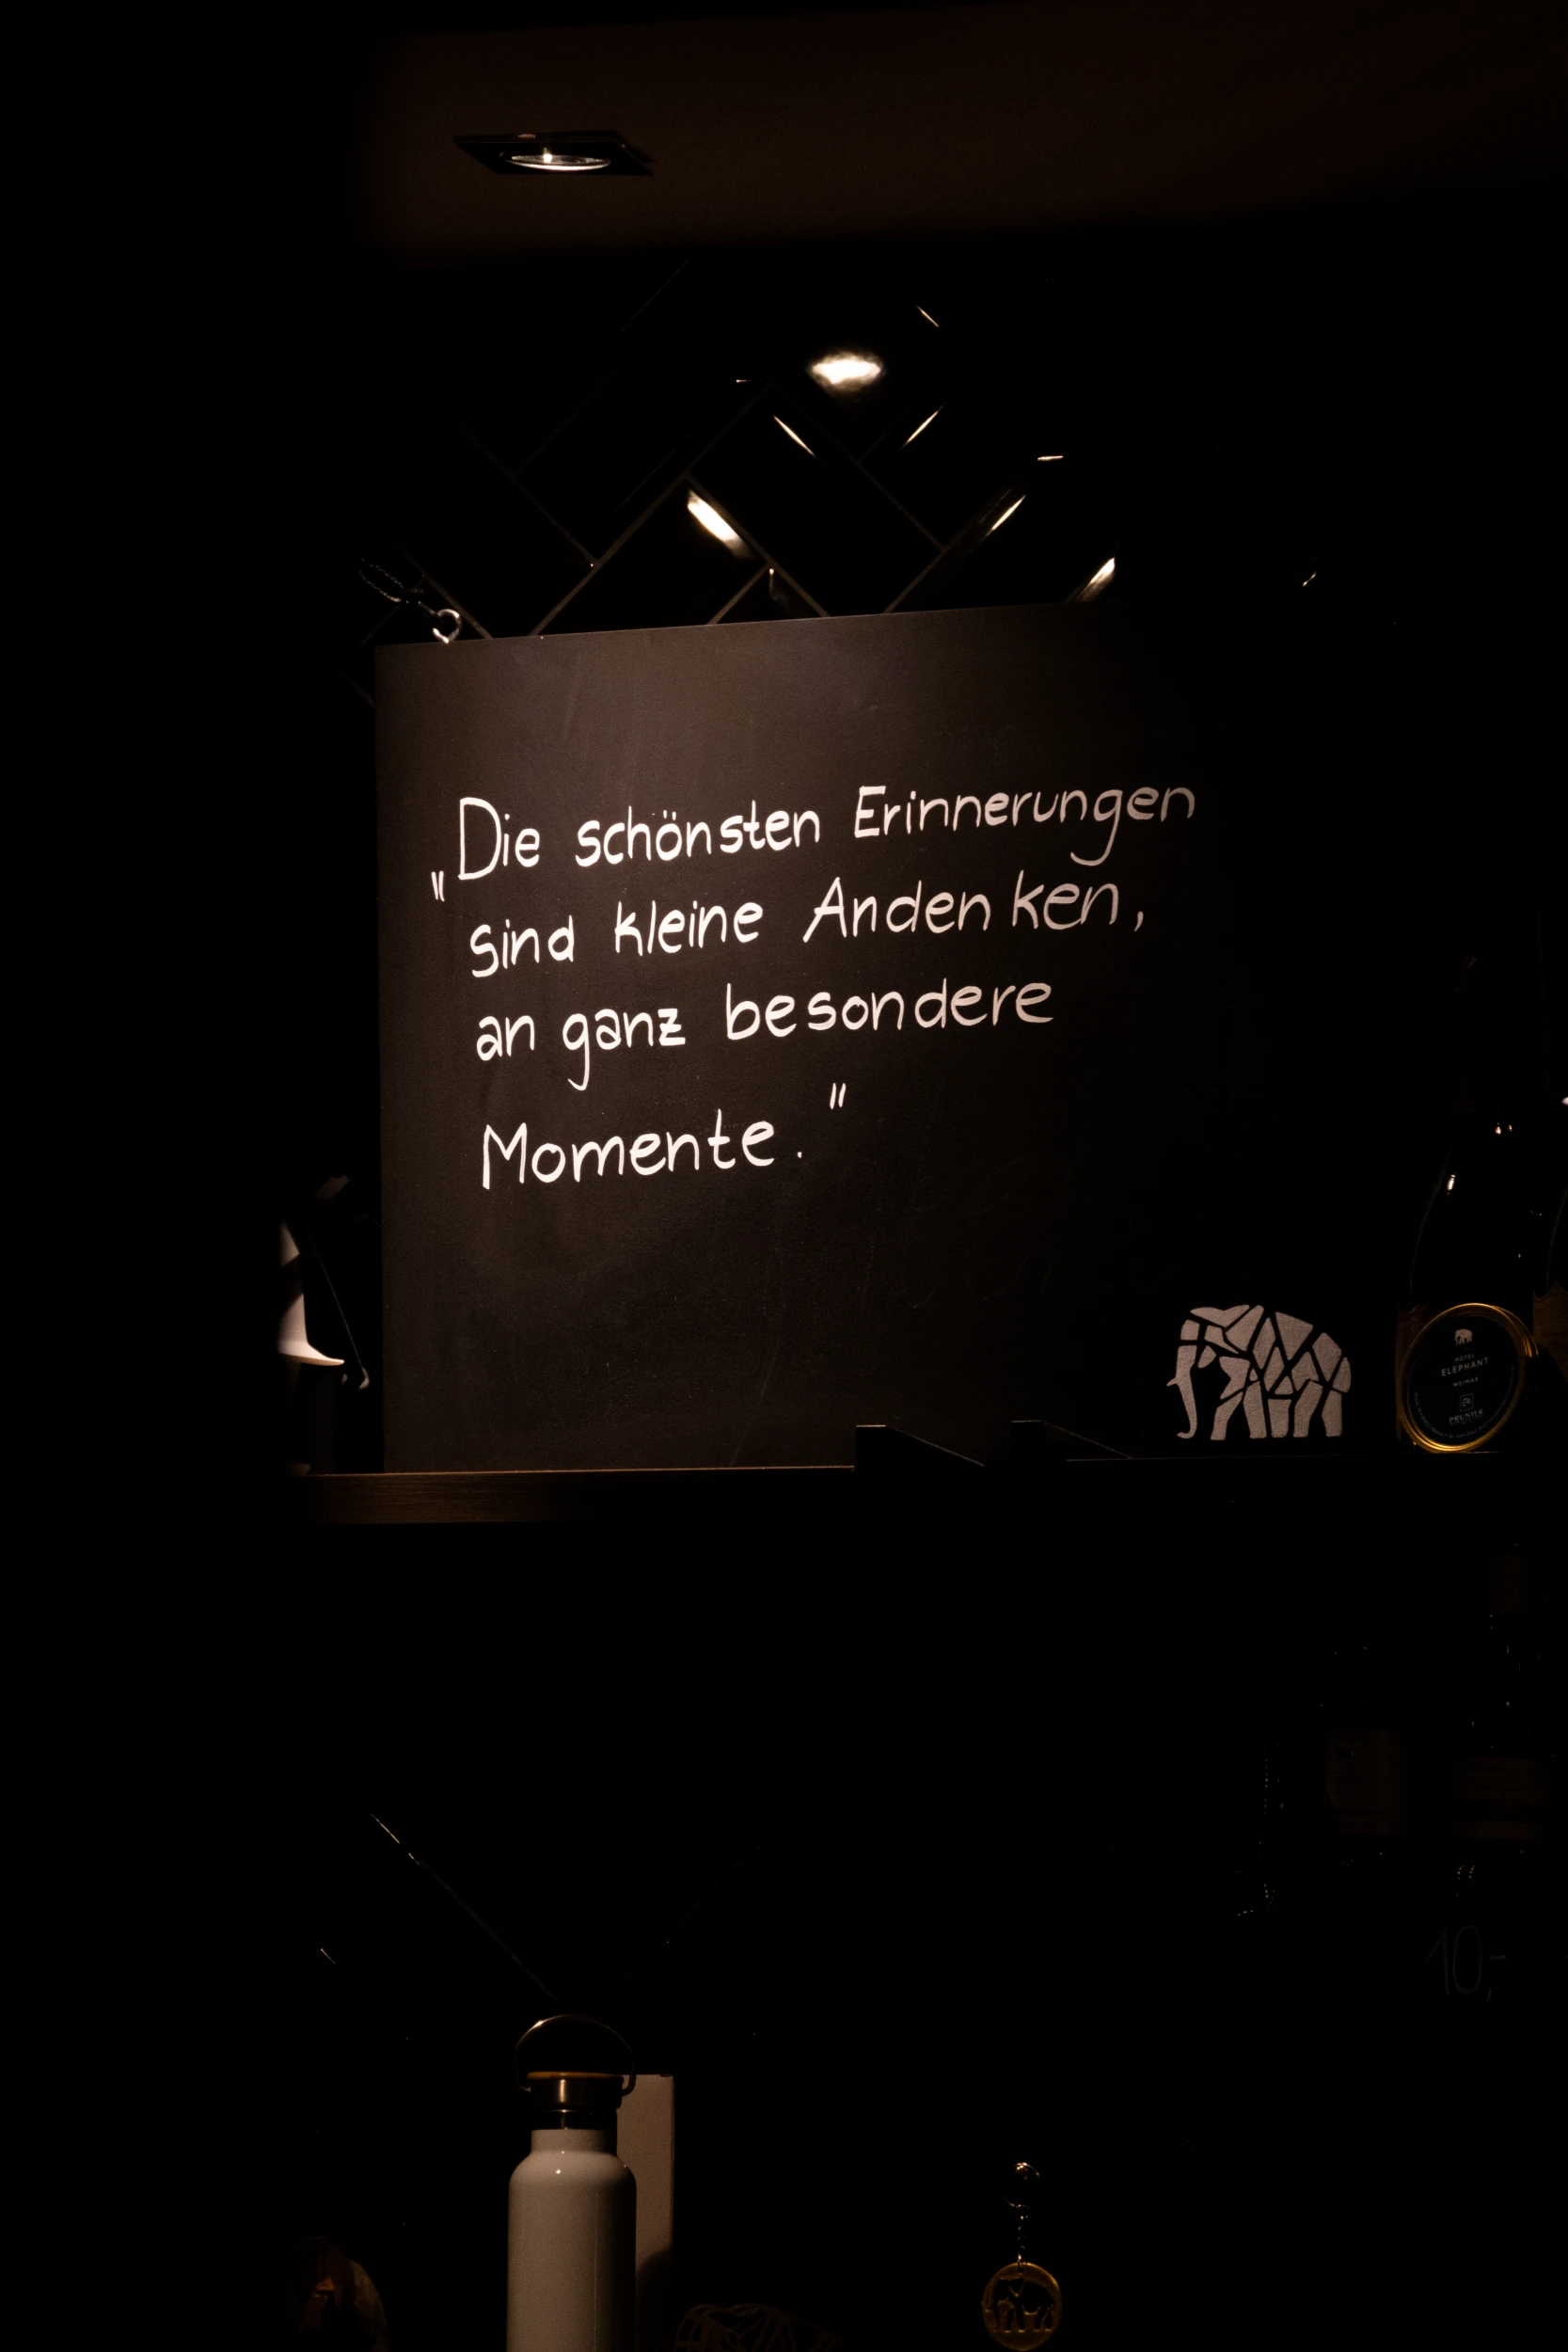 „Die schönsten Erinnerungen
sind kleine Andenken,
an ganz besondere
Momente."
HOTEL
ELEPHANT
WEIMAR
PRUNIER
10,-